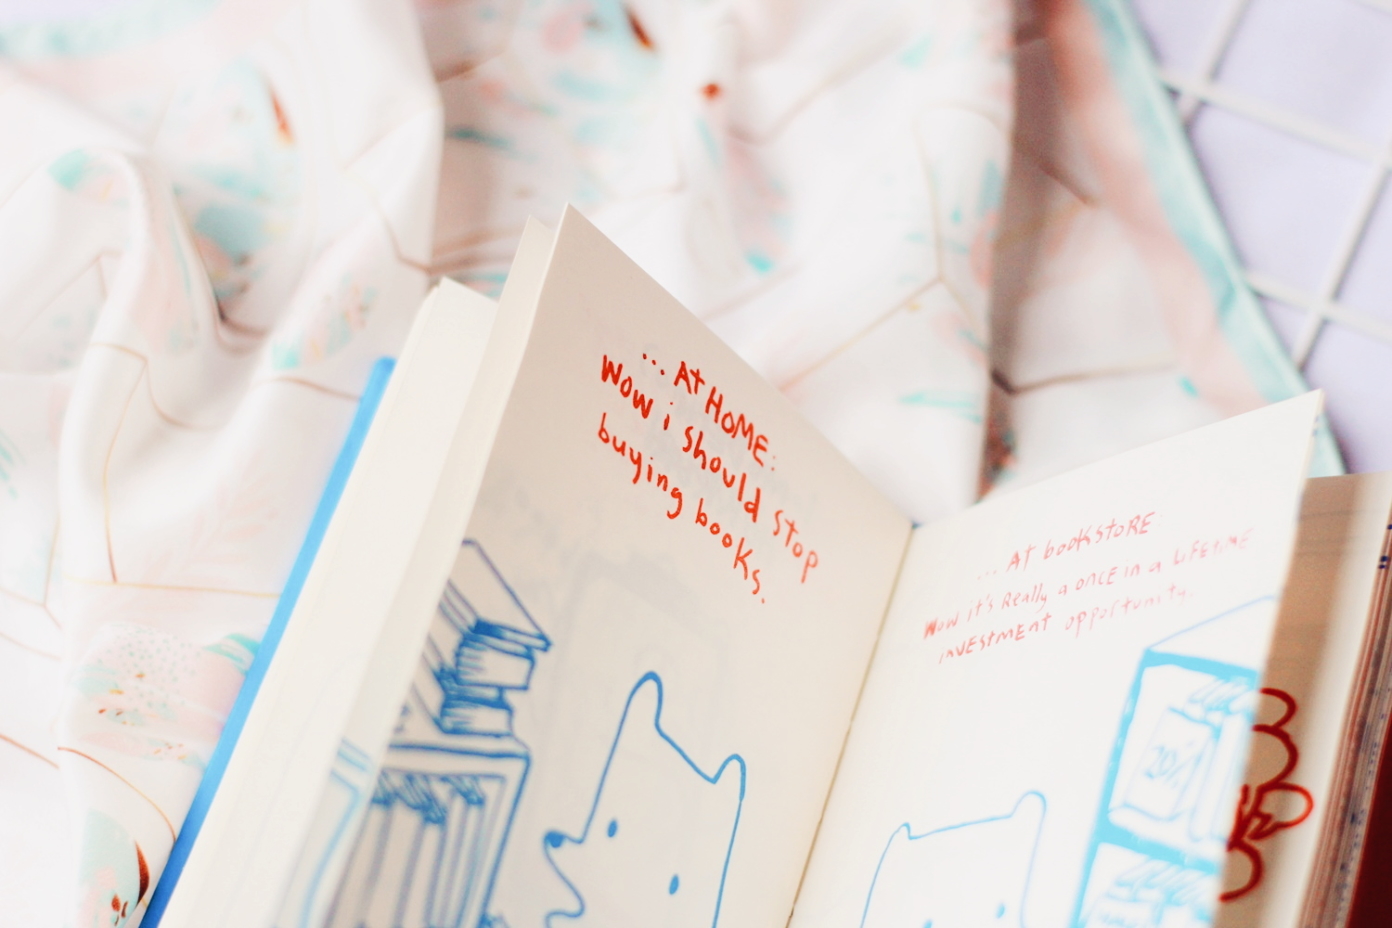 ... At HOME:
Wow i should stop
buying books.
... At bookstore:
Wow it's Really a once in a LIFETIME
inVEStmEnt opportunity.
20%